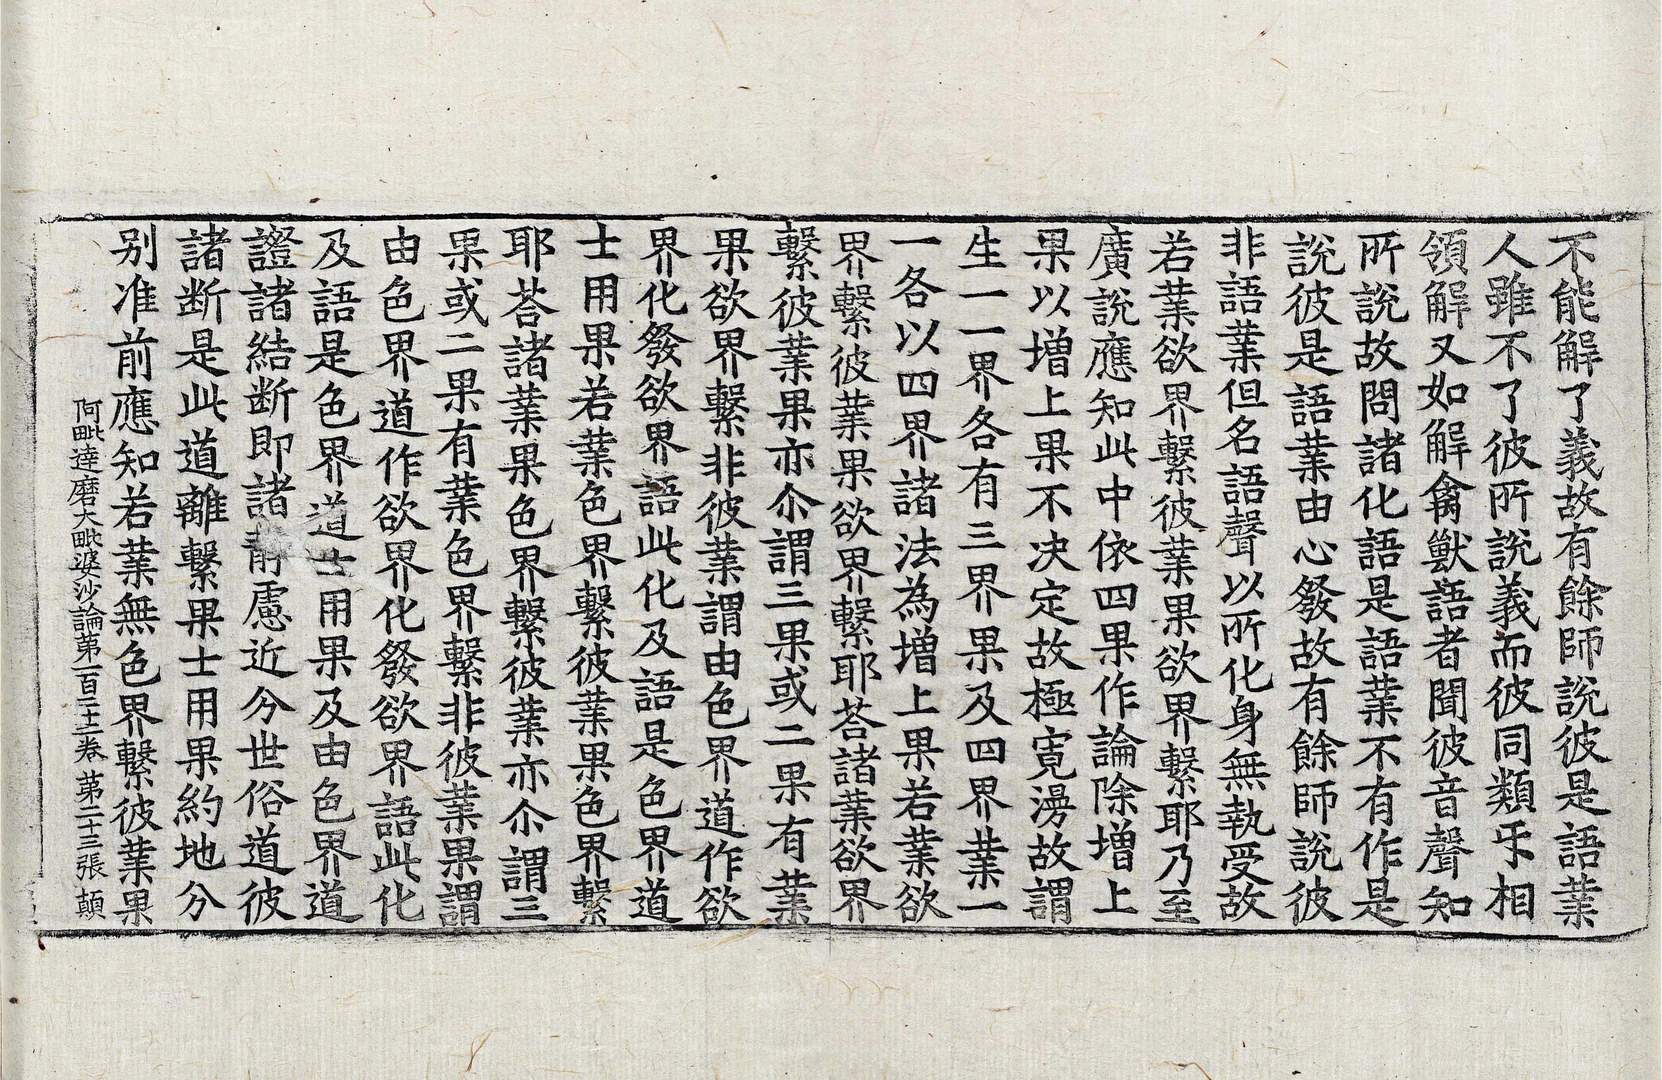 不能解了義故有餘師說彼是語業
人雖不了彼所說義而彼同類𠂖相
領解又如解禽獸語者聞彼音聲知
所說故問諸化語是語業不有作是
說彼是語業由心發故有餘師說彼
非語業但名語聲以所化身無執受故
若業欲界繫彼業果欲界繫耶乃至
廣說應知此中依四果作論除增上
果以增上果不决定故極寬漫故謂
生一一界各有三界果及四界業一
一各以四界諸法為增上果若業欲
界繫彼業果欲界繫耶荅諸業欲界
繫彼業果亦尒謂三果或二果有業
果欲界繫非彼業謂由色界道作欲
界化發欲界語此化及語是色界道
士用果若業色界繫彼業果色界繫
耶荅諸業果色界繫彼業亦尒謂三
果或二果有業色界繫非彼業果謂
由色界道作欲界化發欲界語此化
及語是色界道士用果及由色界道
證諸結断即諸靜慮近分世俗道彼
諸断是此道離繫果士用果約地分
别准前應知若業無色界繫彼業果
阿毗達磨大毗婆沙論第一百二十二卷 第二十三張 顛